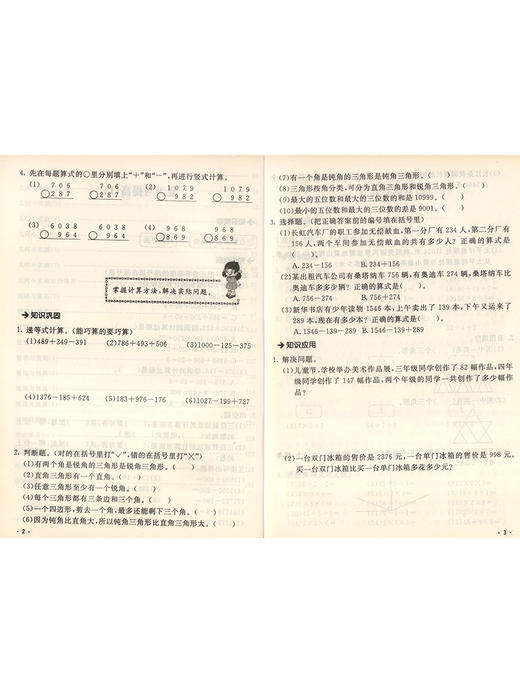 4. 先在每题算式的○里分别填上“+”和“-”,再进行竖式计算。
(1) 706 706 (2) 1079 1079
○287 ○287 ○ 982 ○ 982
(3) 6038 6038 (4) 968 968
○ 964 ○ 964 ○869 ○869
掌握计算方法,解决实际问题。
➔知识巩固
1. 递等式计算。(能巧算的要巧算)
(1)489+349-391 (2)786+493+506 (3)1000-125-375
(4)1376-185+624 (5)183+976-176 (6)1027-199+727
2. 判断题。(对的在括号里打“√”,错的在括号里打“╳”)
(1)有两个角是锐角的三角形是锐角三角形。( )
(2)直角三角形有一个直角。( )
(3)任意三角形至少有一个锐角。( )
(4)每个三角形都有三条边和三个角。( )
(5)一个四边形,剪去一个角,最多还能剩下三个角。( )
(6)因为钝角比直角大,所以钝角三角形比直角三角形大。( )
· 2 ·
(7)有一个角是钝角的三角形是钝角三角形。( )
(8)三角形按角分类,可分为直角三角形和锐角三角形。( )
(9)最大的五位数和最大的三位数的和是10999。( )
(10)最小的五位数和最大的三位数的差是9001。( )
3. 选择题。(把正确答案前的编号填在括号里)
(1)长虹汽车厂的职工参加无偿献血,第一分厂有 234 人,第二分厂有
156人,两个车间参加无偿献血的共有多少人? 正确的算式是
( )。
A. 234-156 B. 234+156
(2)某出租汽车公司有桑塔纳车 756 辆,有奥迪车 274 辆,桑塔纳车比
奥迪车多多少辆? 正确的算式是( )。
A. 756-274 B. 756+274
(3)新华书店有少年读物 1546 本,上午卖出了 139 本,下午又运来了
289 本,现在有多少本? 正确的算式是( )。
A. 1546-139-289 B. 1546-139+289
➔知识应用
1. 解决问题。
(1)儿童节,学校举办美术作品展,三年级同学创作了 82 幅作品,四年
级同学创作了 147 幅作品,两个年级的同学一共创作了多少幅作
品?
(2)一台双门冰箱的售价是 2376 元,一台单门冰箱的售价是 998 元。
买一台双门冰箱比买一台单门冰箱多花多少元?
· 3 ·